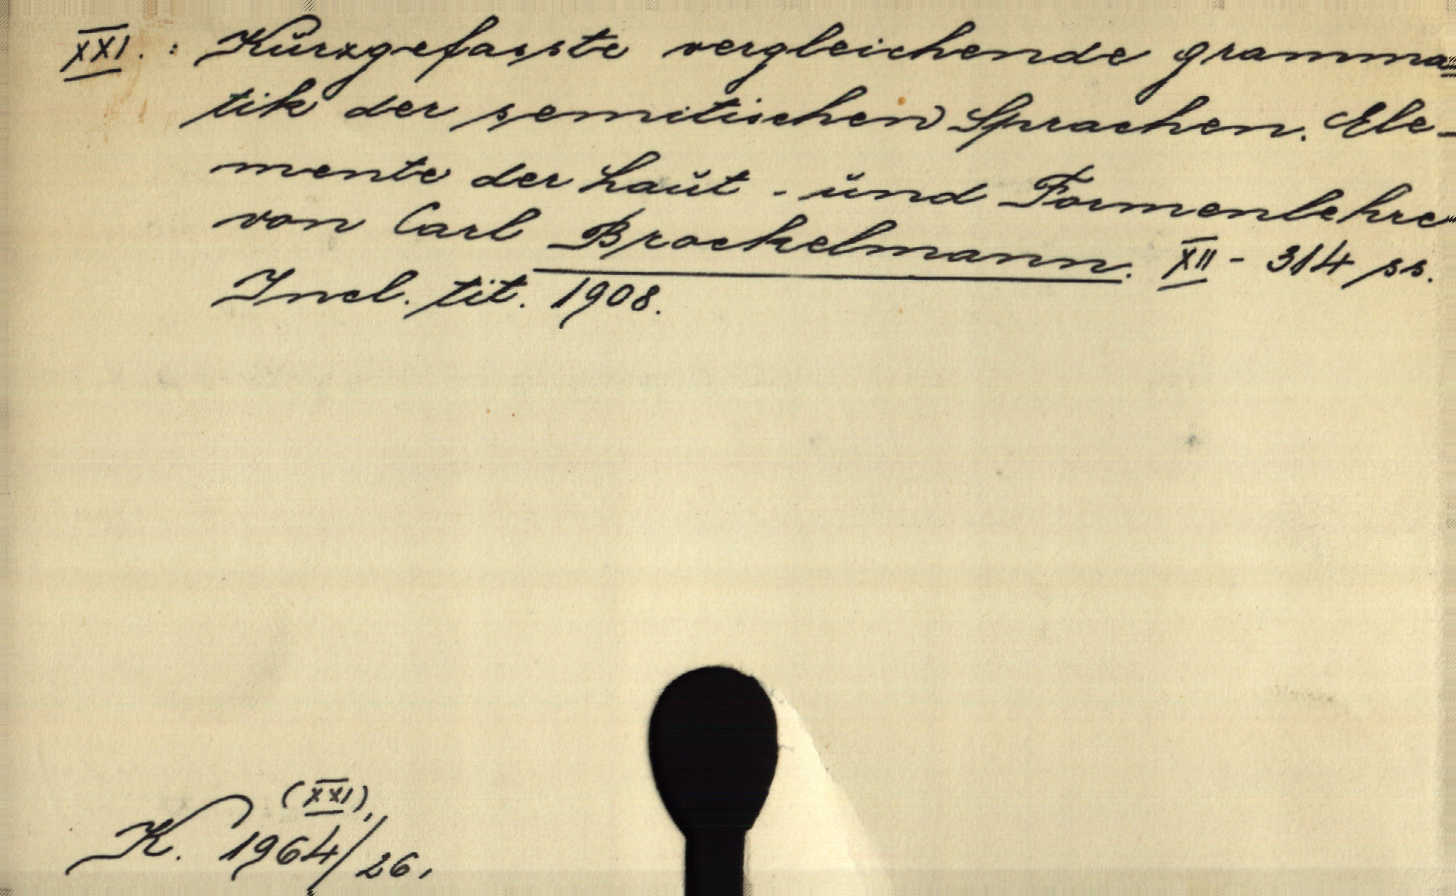 XXI. : Kürzgefasste vergleichende gramma=
tik der semitischen Sprachen. Ele-
mente der Laüt - ünd Formenlehre
von Carl Brockelmann. XII - 314 ss.
Incl. tit. 1908.
(XXI),
K. 1964/26,